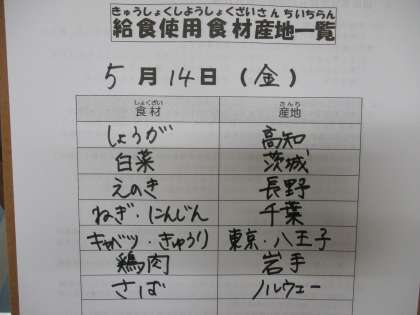 きゅうしょくしようしょくざいさんちいちらん
給食使用食材産地一覧
5月14日(金)
しょくざい さんち
食材 産地
しょうが 高知
白菜 茨城
えのき 長野
ねぎ・にんじん 千葉
キャベツ・きゅうり 東京・八王子
鶏肉 岩手
さば ノルウェー